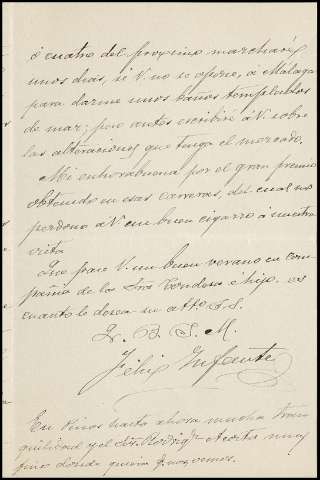 ó cuatro del proximo marcharé
unos dias, si V. no se opone, á Málaga
para darme unos baños templados
de mar; pero antes escribiré á V. sobre
las alteraciones que tenga el mercado.
Mi enhorabuena por el gran premio
obtenido en esas carreras, del cual no
perdono á V. un buen cigarro á nuestra
vista.
Que pase V. un buen verano en com
pañia de los Sres Condeses é hijo es
cuanto le desea su atto. S. S.
Q. B. S. M.
Felix Infante
En Pinos hasta ahora mucha tran
quilidad y el Sr. Rodrigz Acosta muy
fino donde quiera q. nos vemos.